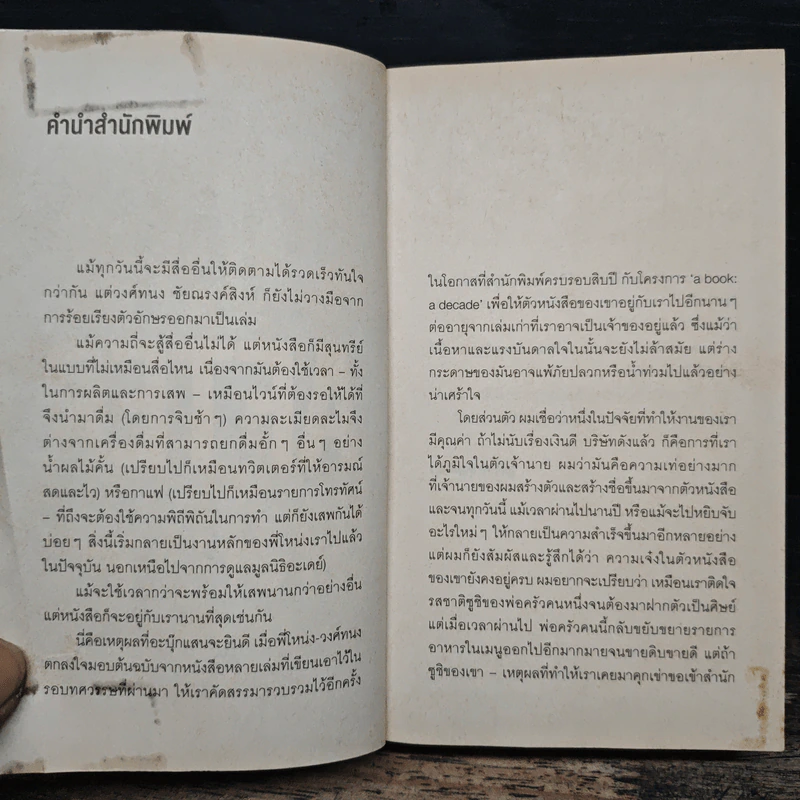 คำนำสำนักพิมพ์
แม้ทุกวันนี้จะมีสื่ออื่นให้ติดตามได้รวดเร็วทันใจ
กว่ากัน แต่วงศ์ทนง ชัยณรงค์สิงห์ ก็ยังไม่วางมือจาก
การร้อยเรียงตัวอักษรออกมาเป็นเล่ม
แม้ความถี่จะสู้สื่ออื่นไม่ได้ แต่หนังสือก็มีสุนทรีย์
ในแบบที่ไม่เหมือนสื่อไหน เนื่องจากมันต้องใช้เวลา – ทั้ง
ในการผลิตและการเสพ – เหมือนไวน์ที่ต้องรอให้ได้ที่
จึงนำมาดื่ม (โดยการจิบช้าๆ) ความละเมียดละไมจึง
ต่างจากเครื่องดื่มที่สามารถยกดื่มอั้กๆ อื่นๆ อย่าง
น้ำผลไม้คั้น (เปรียบไปก็เหมือนทวิตเตอร์ที่ให้อารมณ์
สดและไว) หรือกาแฟ (เปรียบไปก็เหมือนรายการโทรทัศน์
– ที่ถึงจะต้องใช้ความพิถีพิถันในการทำ แต่ก็ยังเสพกันได้
บ่อยๆ สิ่งนี้เริ่มกลายเป็นงานหลักของพี่โหน่งเราไปแล้ว
ในปัจจุบัน นอกเหนือไปจากการดูแลมูลนิธิอะเดย์)
แม้จะใช้เวลากว่าจะพร้อมให้เสพนานกว่าอย่างอื่น
แต่หนังสือก็จะอยู่กับเรานานที่สุดเช่นกัน
นี่คือเหตุผลที่อะบุ๊กแสนจะยินดี เมื่อพี่โหน่ง-วงศ์ทนง
ตกลงใจมอบต้นฉบับจากหนังสือหลายเล่มที่เขียนเอาไว้ใน
รอบทศวรรษที่ผ่านมา ให้เราคัดสรรมารวบรวมไว้อีกครั้ง
ในโอกาสที่สำนักพิมพ์ครบรอบสิบปี กับโครงการ ‘a book:
a decade’ เพื่อให้ตัวหนังสือของเขาอยู่กับเราไปอีกนานๆ
ต่ออายุจากเล่มเก่าที่เราอาจเป็นเจ้าของอยู่แล้ว ซึ่งแม้ว่า
เนื้อหาและแรงบันดาลใจในนั้นจะยังไม่ล้าสมัย แต่ร่าง
กระดาษของมันอาจแพ้ภัยปลวกหรือน้ำท่วมไปแล้วอย่าง
น่าเศร้าใจ
โดยส่วนตัว ผมเชื่อว่าหนึ่งในปัจจัยที่ทำให้งานของเรา
มีคุณค่า ถ้าไม่นับเรื่องเงินดี บริษัทดังแล้ว ก็คือการที่เรา
ได้ภูมิใจในตัวเจ้านาย ผมว่ามันคือความเท่อย่างมาก
ที่เจ้านายของผมสร้างตัวและสร้างชื่อขึ้นมาจากตัวหนังสือ
และจนทุกวันนี้ แม้เวลาผ่านไปนานปี หรือแม้จะไปหยิบจับ
อะไรใหม่ๆ ให้กลายเป็นความสำเร็จขึ้นมาอีกหลายอย่าง
แต่ผมก็ยังสัมผัสและรู้สึกได้ว่า ความเจ๋งในตัวหนังสือ
ของเขายังคงอยู่ครบ ผมอยากจะเปรียบว่า เหมือนเราติดใจ
รสชาติซูชิของพ่อครัวคนหนึ่งจนต้องมาฝากตัวเป็นศิษย์
แต่เมื่อเวลาผ่านไป พ่อครัวคนนี้กลับขยับขยายรายการ
อาหารในเมนูออกไปอีกมากมายจนขายดิบขายดี แต่ถ้า
ซูชิของเขา – เหตุผลที่ทำให้เราเคยมาคุกเข่าขอเข้าสำนัก